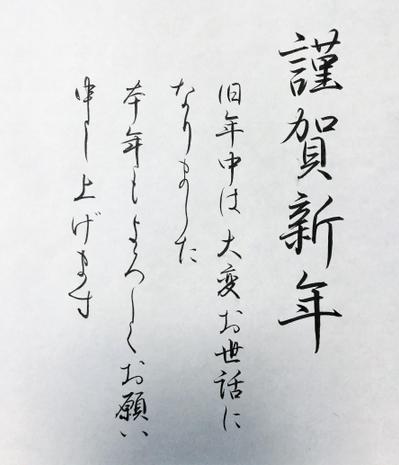 謹賀新年
旧年中は大変お世話に
なりました
本年もよろしくお願い
申し上げます